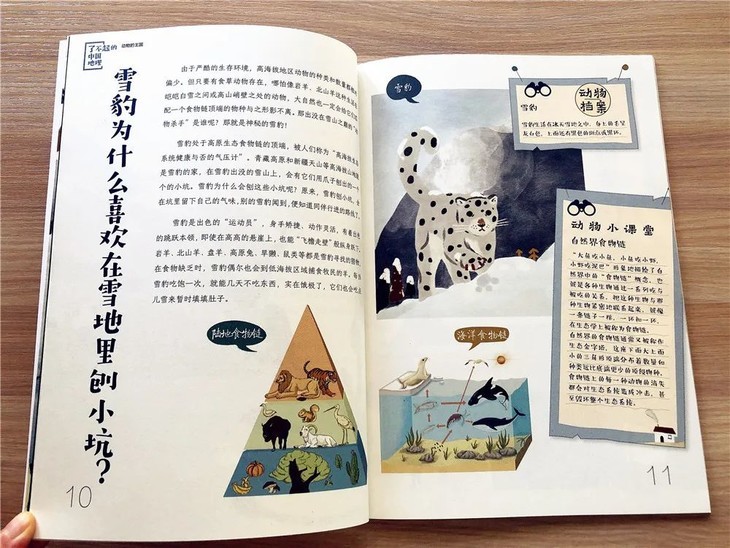 了不起的
中国
地理
动物的王国
雪豹为什么喜欢在雪地里刨小坑？
由于严酷的生存环境，高海拔地区动物的种类和数量都
偏少。但只要有食草动物存在，哪怕像岩羊、北山羊这种生活在
皑皑白雪之间或高山峭壁之处的动物，大自然也一定会给它们
配一个食物链顶端的物种与之形影不离。即出没在雪山之巅的
物杀手”是谁呢？那就是神秘的雪豹！
雪豹处于高原生态食物链的顶端，被人们称为“高海拔生态
系统健康与否的气压计”。青藏高原和新疆天山等高海拔
是雪豹的家，在雪豹出没的雪山上，会有它们用爪子刨出的一个
个的小坑。雪豹为什么会刨这些小坑呢？原来，雪豹刨小坑，会
在坑里留下自己的气味，别的雪豹闻到，便知道同伴行进的路线了。
雪豹是出色的“运动员”，身手矫捷、动作灵活，有着出色
的跳跃本领，即使在高高的悬崖上，也能“飞檐走壁”般纵身跃下。
岩羊、北山羊、盘羊、高原兔、旱獭、鼠类等都是雪豹寻找的猎物，
在食物缺乏时，雪豹偶尔也会到低海拔区域捕食牧民的羊。每当
雪豹吃饱一次，就能几天不吃东西，实在饿极了，它们也会吃点
儿雪来暂时填填肚子。
陆地食物链
10
雪豹
雪豹
动物
档案
雪豹生活在冰天雪地之中，身上的毛呈
灰白色，上面还有黑色的斑点或黑环。
动物小课堂
自然界食物链
“大鱼吃小鱼，小鱼吃小虾，
小虾吃泥巴”形象地描绘了自
然界中的“食物链”概念，也
就是各种生物通过一系列吃与
被吃的关系，把这种生物与那
种生物紧密地联系起来，就像
一条链子一样，一环扣一环，
在生态学上被称为食物链。
自然界的食物链能量又被称作
生态金字塔，这座下面大上面
小的三角的顶端分布着数量和
种类远比底端更少的顶级物种。
食物链上的每一种动物的消失
都会对生态系统造成冲击，甚
至毁坏整个生态系统。
海洋食物链
11